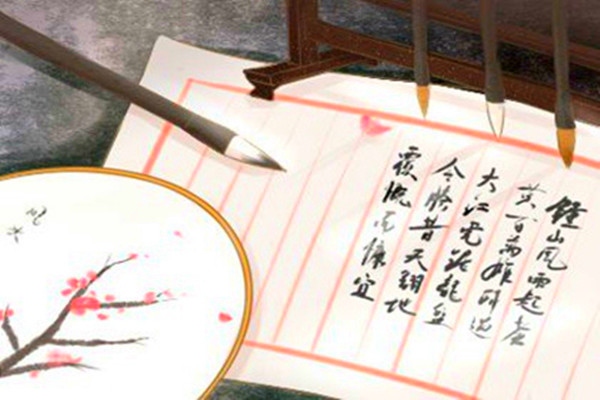 鍾山风雨起苍
黄百萬雄师过
大江虎踞龙盘
今胜昔天翻地
覆慨而慷宜